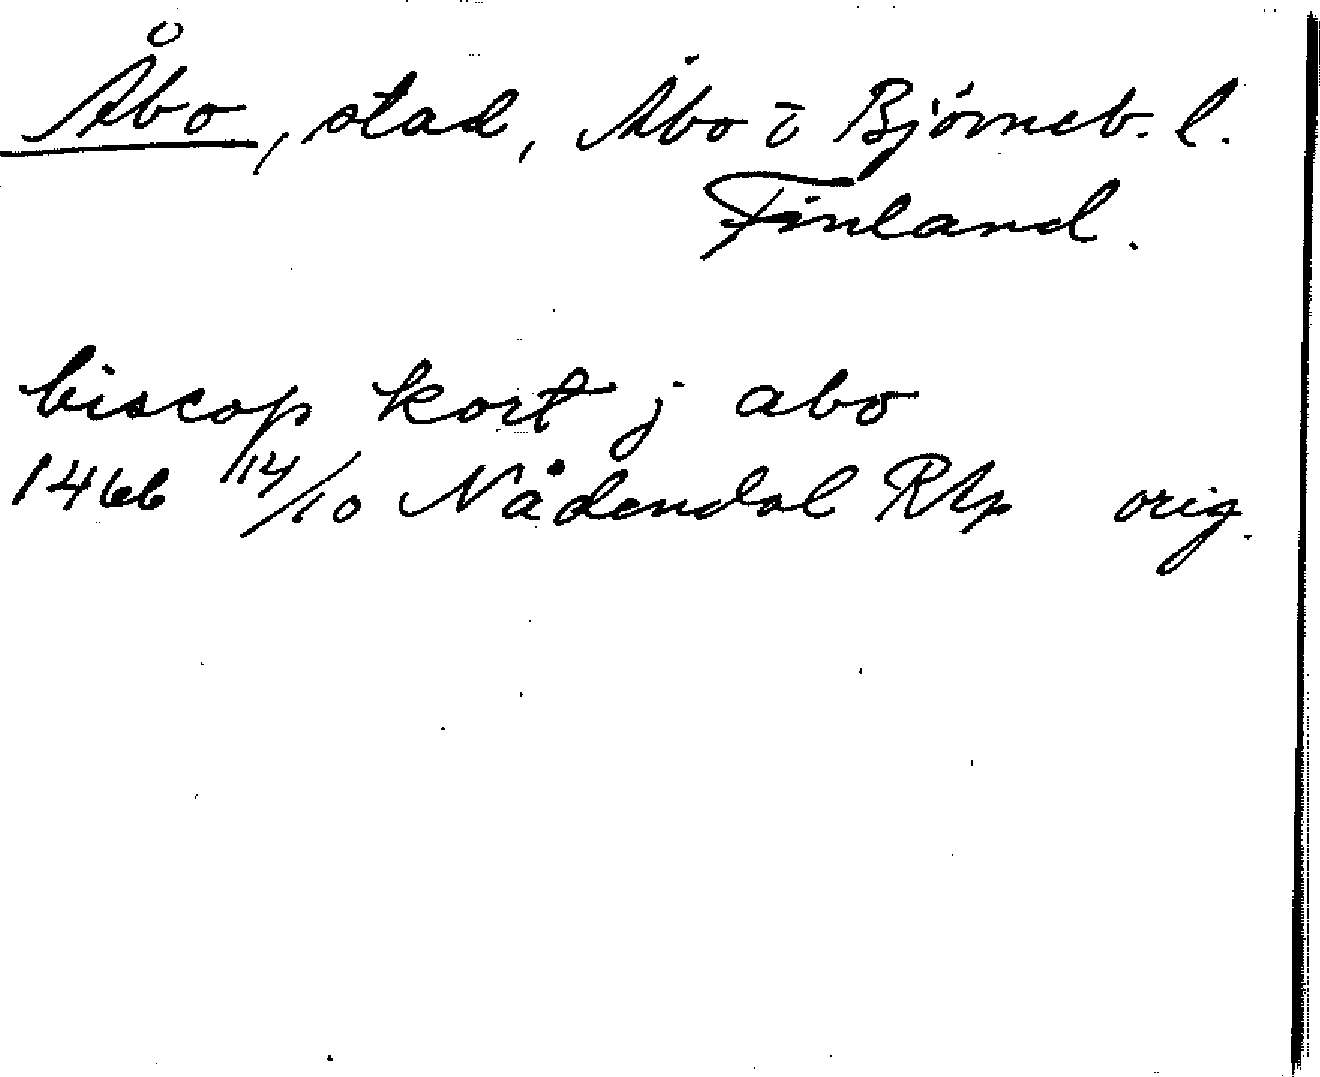 Åbo, stad, Åbo o Björneb. l.
Finland.
biscop kort j abo
1466 14/10 Nådendal RAp orig.